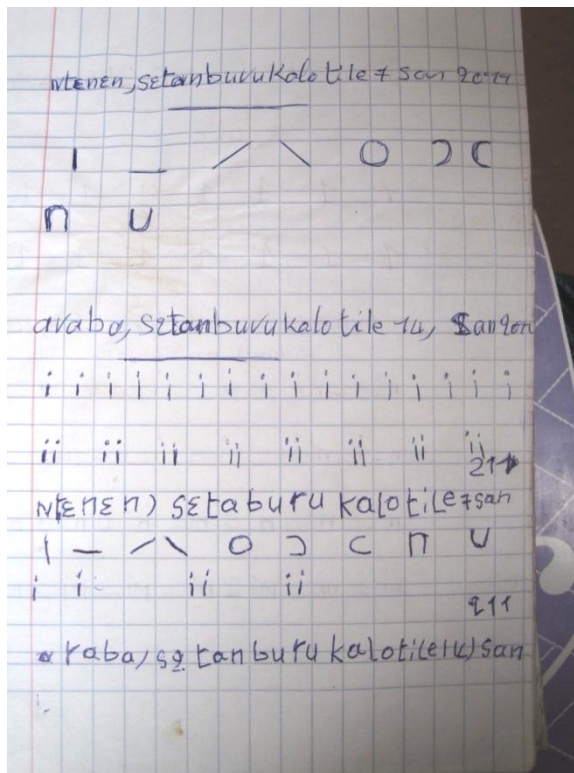 ntɛnɛn, sɛtanburukalo tile 7 san 2011
| _ / \ O Ɔ C
n U
araba, sɛtanburukalo tile 14, san 2011
i i i i i i i i i i i i i i i i
ii ii ii ii ii ii ii ii
Ntɛnɛn) sɛtaburu kalotile7san 211
| — / \ O Ɔ C n U
i i ii ii
araba, sɛtanburu kalotile14)san 211